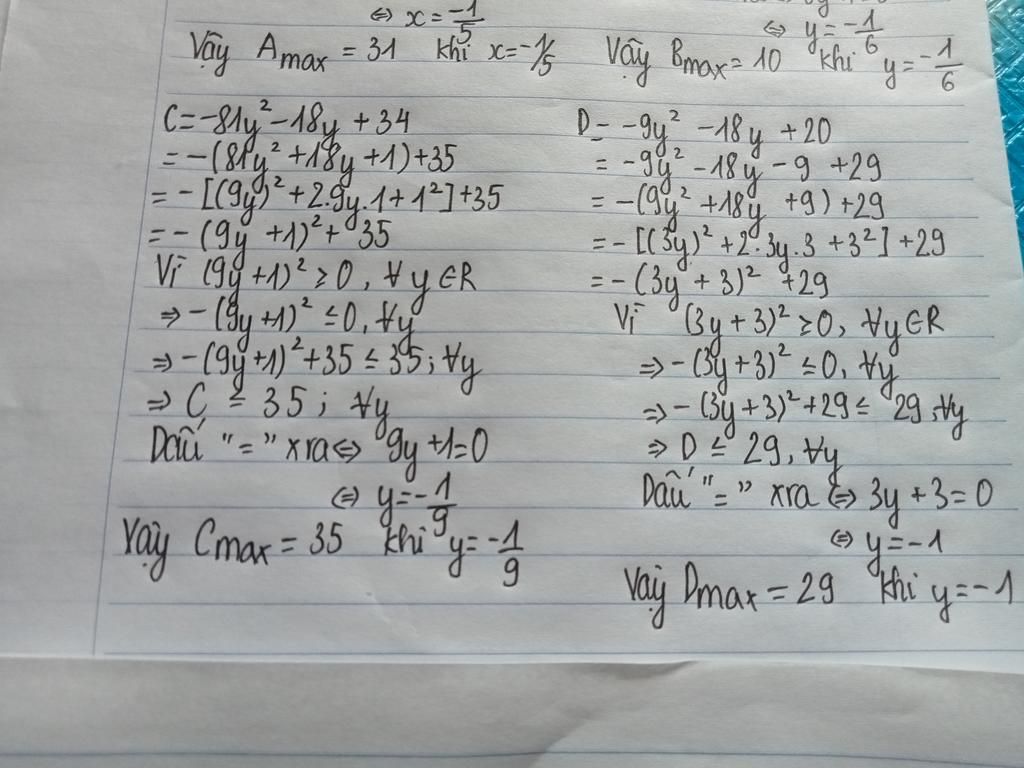 ⇔ x = -1/5
Vậy Amax = 31 khi x = -1/5
C = -81y² - 18y + 34
= -(81y² + 18y + 1) + 35
= -[(9y)² + 2.9y.1 + 1²] + 35
= -(9y + 1)² + 35
Vì (9y + 1)² ≥ 0, ∀y∈R
⇒ -(9y + 1)² ≤ 0, ∀y
⇒ -(9y + 1)² + 35 ≤ 35; ∀y
⇒ C ≤ 35; ∀y
Dấu "=" xra ⇔ 9y + 1 = 0
⇔ y = -1/9
Vậy Cmax = 35 khi y = -1/9
⇔ y = -1/6
Vậy Bmax = 10 khi y = -1/6
D = -9y² - 18y + 20
= -9y² - 18y - 9 + 29
= -(9y² + 18y + 9) + 29
= -[(3y)² + 2.3y.3 + 3²] + 29
= -(3y + 3)² + 29
Vì (3y + 3)² ≥ 0, ∀y∈R
⇒ -(3y + 3)² ≤ 0, ∀y
⇒ -(3y + 3)² + 29 ≤ 29, ∀y
⇒ D ≤ 29, ∀y
Dấu "=" xra ⇔ 3y + 3 = 0
⇔ y = -1
Vậy Dmax = 29 khi y = -1